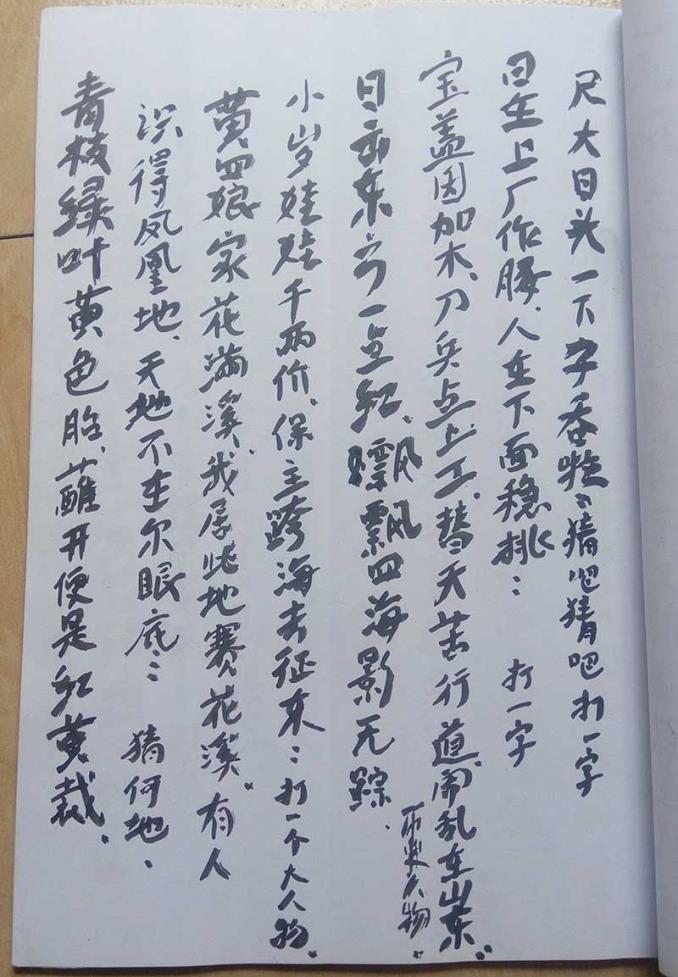 尺大日头一下字吞啦：猜吧猜吧打一字
曰全上厂作腰、人在下面稳挑：打一字
宝盖因加木、刀兵点上工、替天苦行道、闹乱在山东：
日京东方一点红、飘飘四海影无踪
小岁娃娃千两价、保主跨海去征东：打一个大人物
黄四娘家花满溪、我居此地赛花溪、有人
识得凤凰地、天地不在尔眼底：猜何地、
青枝绿叶黄色脸、蘸开便是红黄裁、